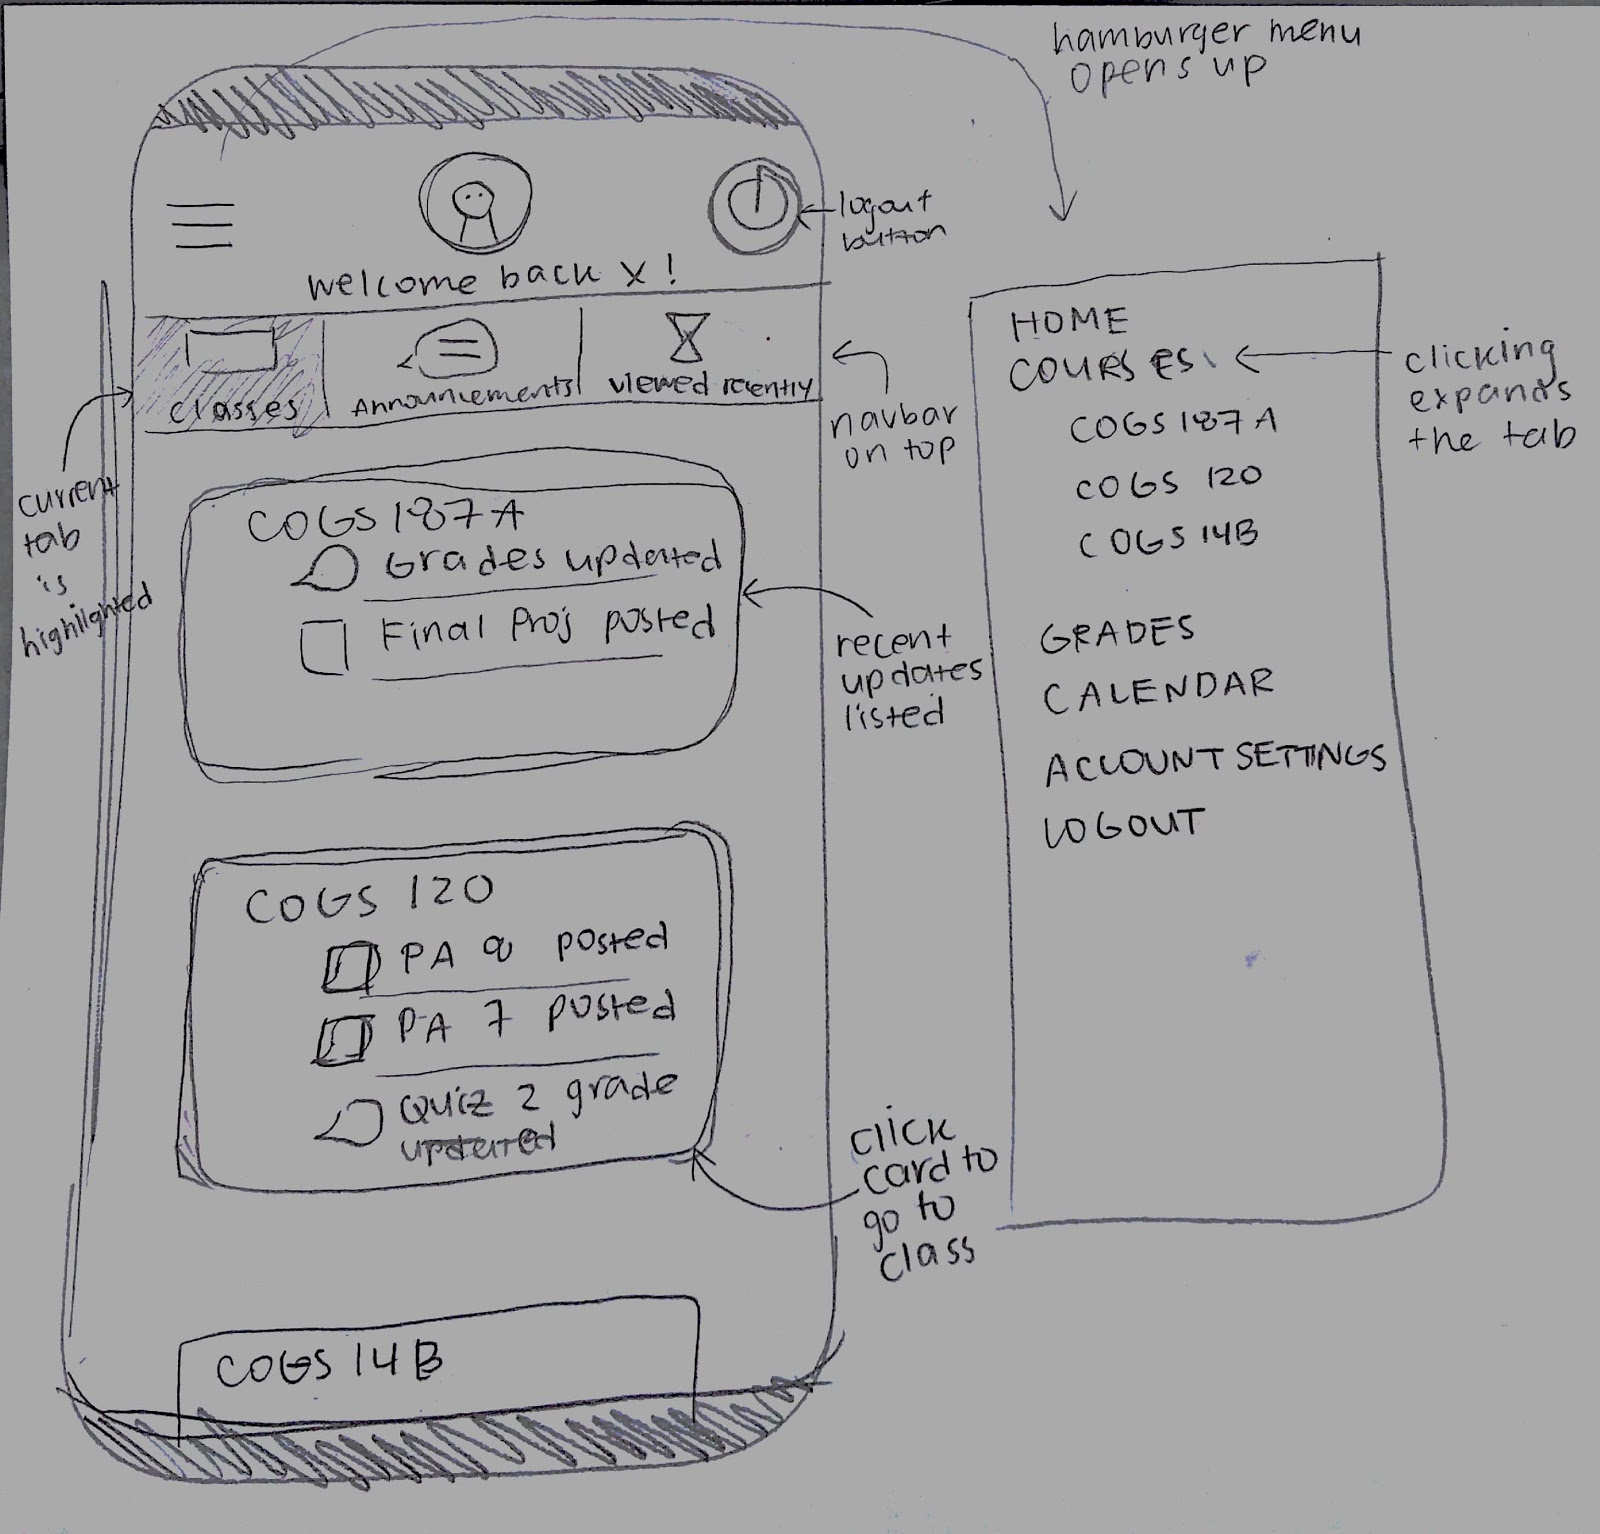 hamburger menu
opens up
logout
button
welcome back X!
classes
Announcements
viewed recently
navbar
on top
current
tab
is
highlighted
COGS 187A
Grades updated
Final Proj posted
recent
updates
listed
COGS 120
PA 8 posted
PA 7 posted
Quiz 2 grade
updated
click
card to
go to
class
COGS 14B
HOME
COURSES
clicking
expands
the tab
COGS 187A
COGS 120
COGS 14B
GRADES
CALENDAR
ACCOUNT SETTINGS
LOGOUT